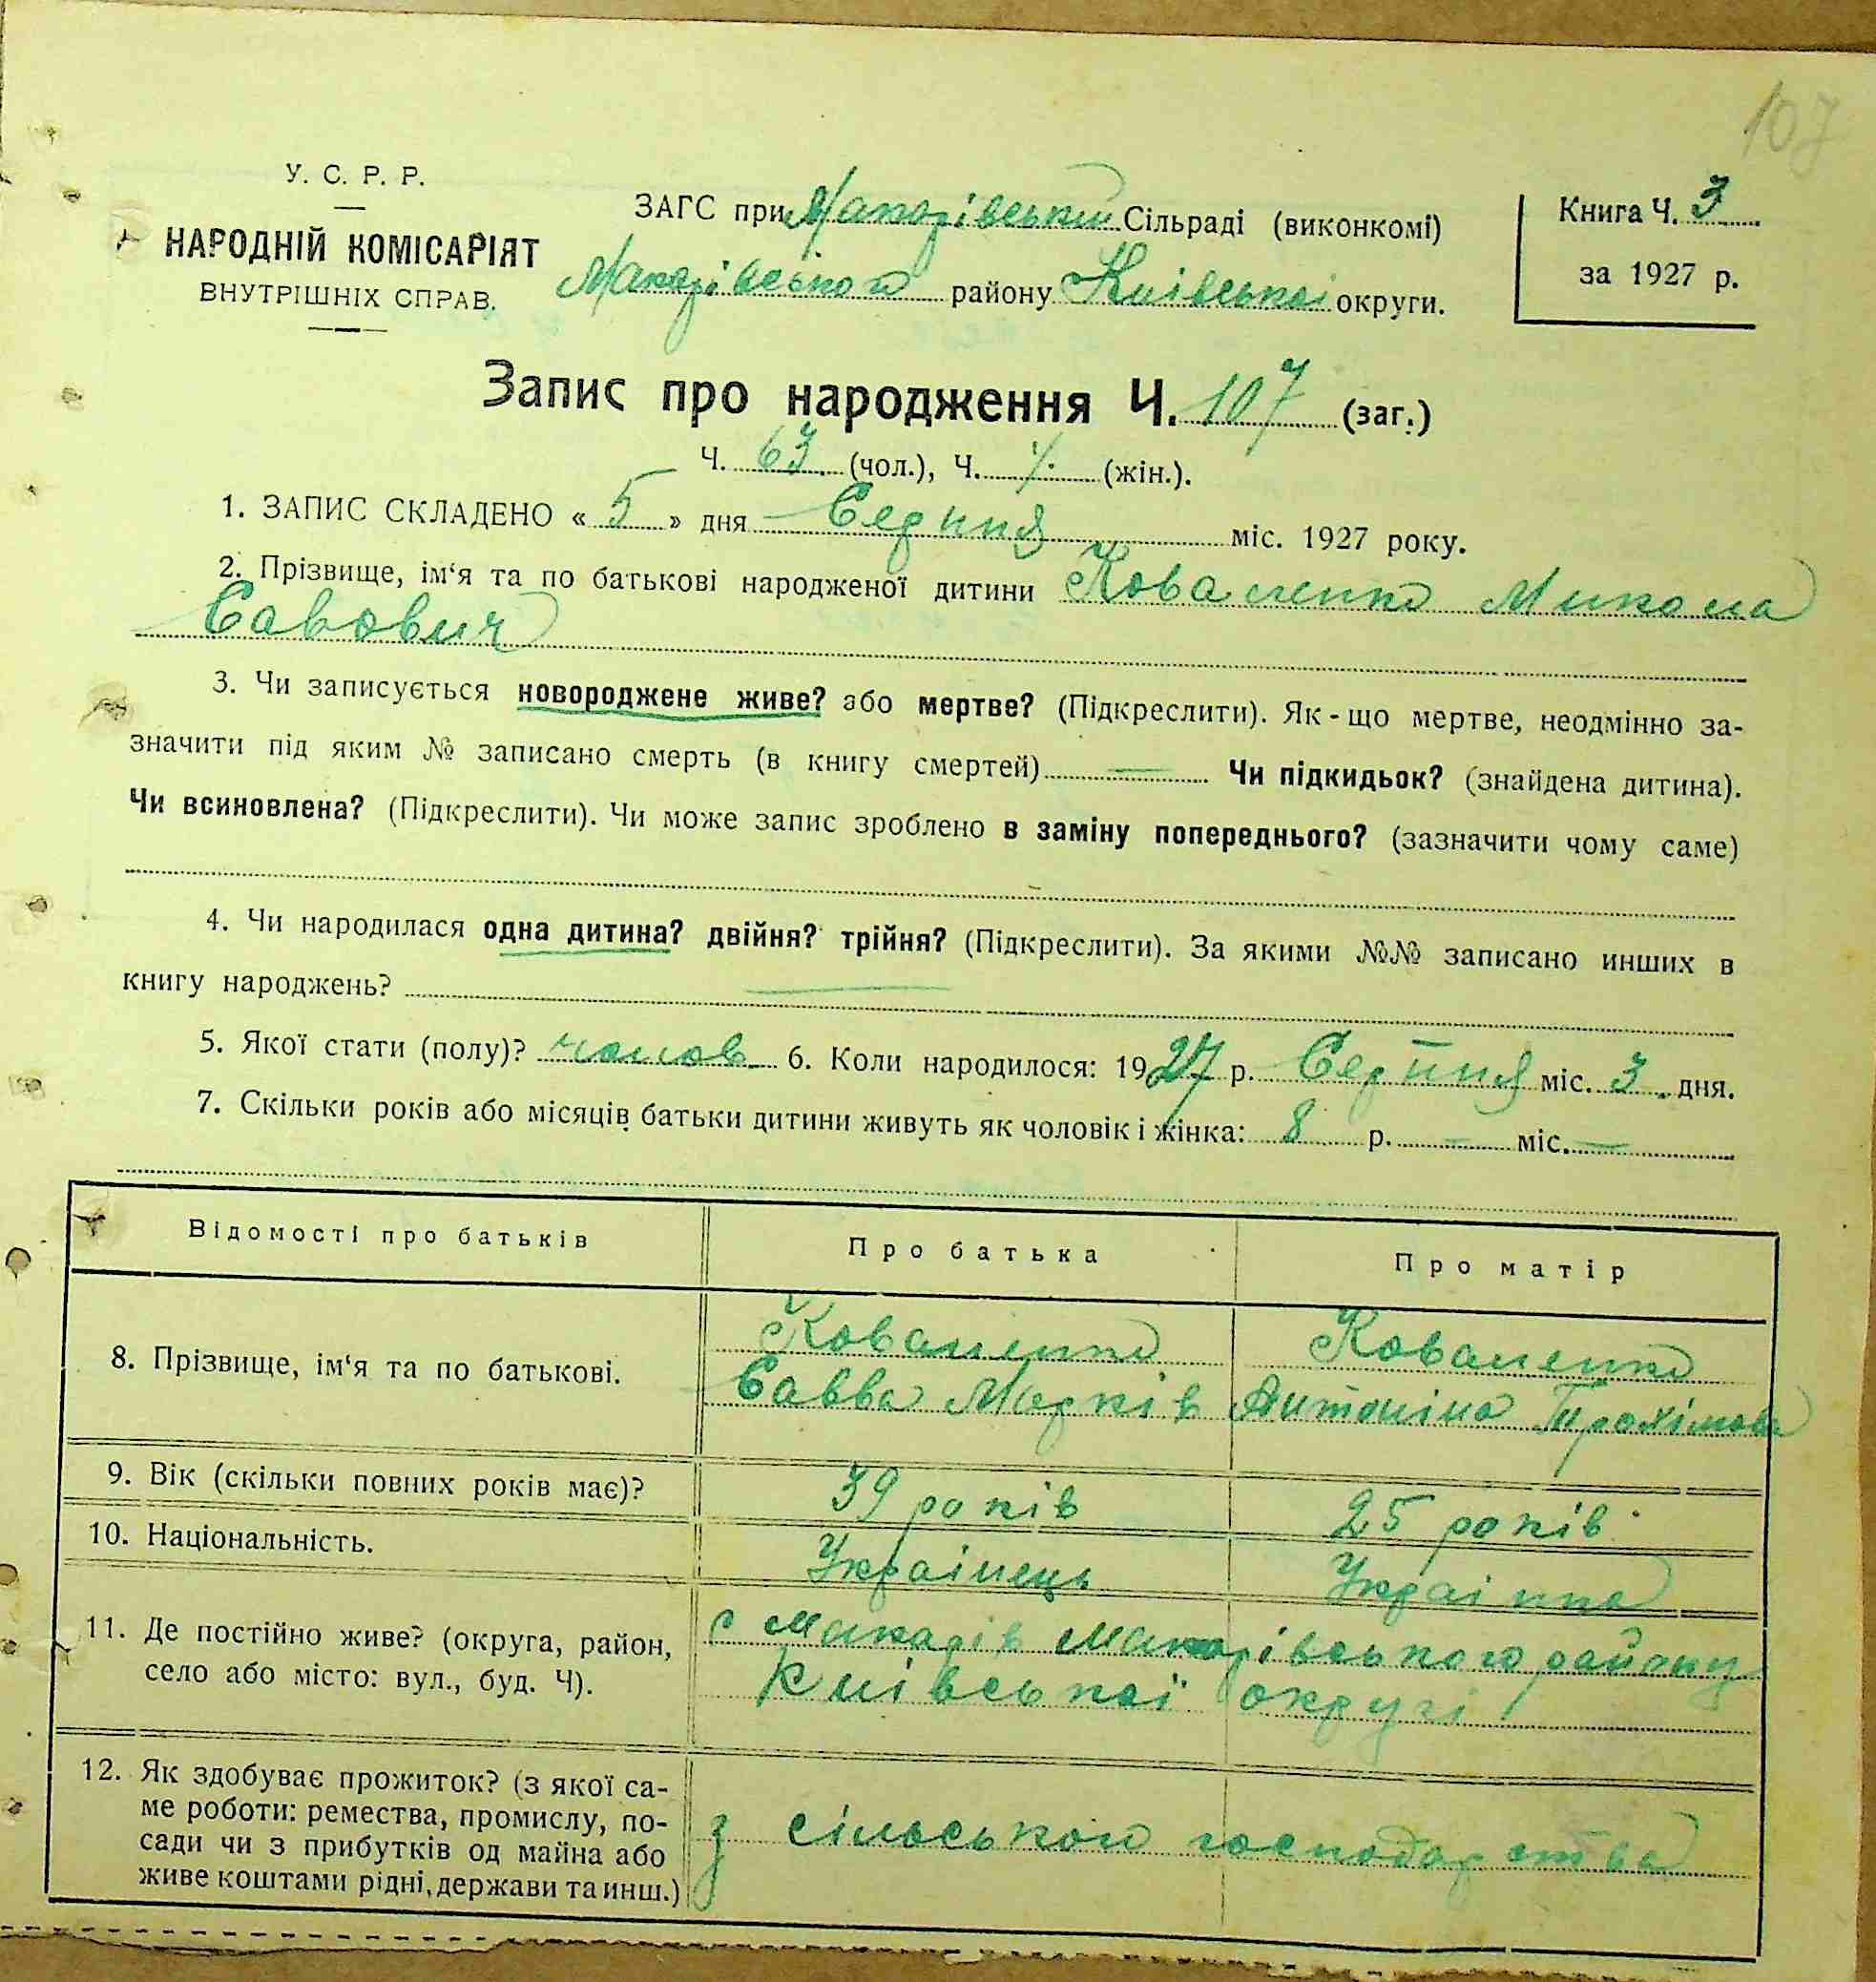 107
У. С. Р. Р.
НАРОДНІЙ КОМІСАРІЯТ
ВНУТРІШНІХ СПРАВ.
ЗАГС при Макарівській Сільраді (виконкомі)
Макарівського району Київської округи.
Книга Ч. 3
за 1927 р.
Запис про народження Ч. 107 (заг.)
Ч. 63 (чол.), Ч. (жін.).
1. ЗАПИС СКЛАДЕНО « 5 » дня Серпня міс. 1927 року.
2. Прізвище, ім‘я та по батькові народженої дитини Коваленко Микола
Савович
3. Чи записується новороджене живе? або мертве? (Підкреслити). Як-що мертве, неодмінно за-
значити під яким № записано смерть (в книгу смертей) — Чи підкидьок? (знайдена дитина).
Чи всиновлена? (Підкреслити). Чи може запис зроблено в заміну попереднього? (зазначити чому саме)
4. Чи народилася одна дитина? двійня? трійня? (Підкреслити). За якими №№ записано инших в
книгу народжень? —
5. Якої стати (полу)? чолов. 6. Коли народилося: 1927 р. Серпня міс. 3 дня.
7. Скільки років або місяців батьки дитини живуть як чоловік і жінка: 8 р. — міс. —
Відомості про батьків Про батька Про матір
8. Прізвище, ім‘я та по батькові.
Коваленко Коваленко
Савва Марків Антоніна Трохімова
9. Вік (скільки повних років має)? 39 років 25 років
10. Національність. Українець Українка
11. Де постійно живе? (округа, район,
село або місто: вул., буд. Ч).
с Макарів Макарівського району
Київської округі
12. Як здобуває прожиток? (з якої са-
ме роботи: ремества, промислу, по-
сади чи з прибутків од майна або
живе коштами рідні, держави та инш.)
з сільського господарства